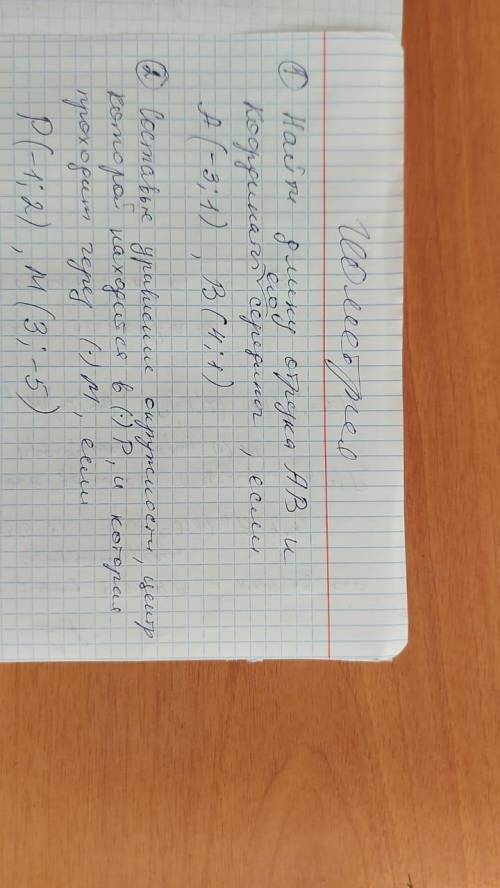 Геометрия
① Найти длину отрезка АВ и
координаты его середины, если
А(-3; 1), В(4; 1)
② Составьте уравнение окружности, центр
которой находится в (·) Р, и которая
проходит через (·) М, если
Р(-1; 2), М(3; -5)